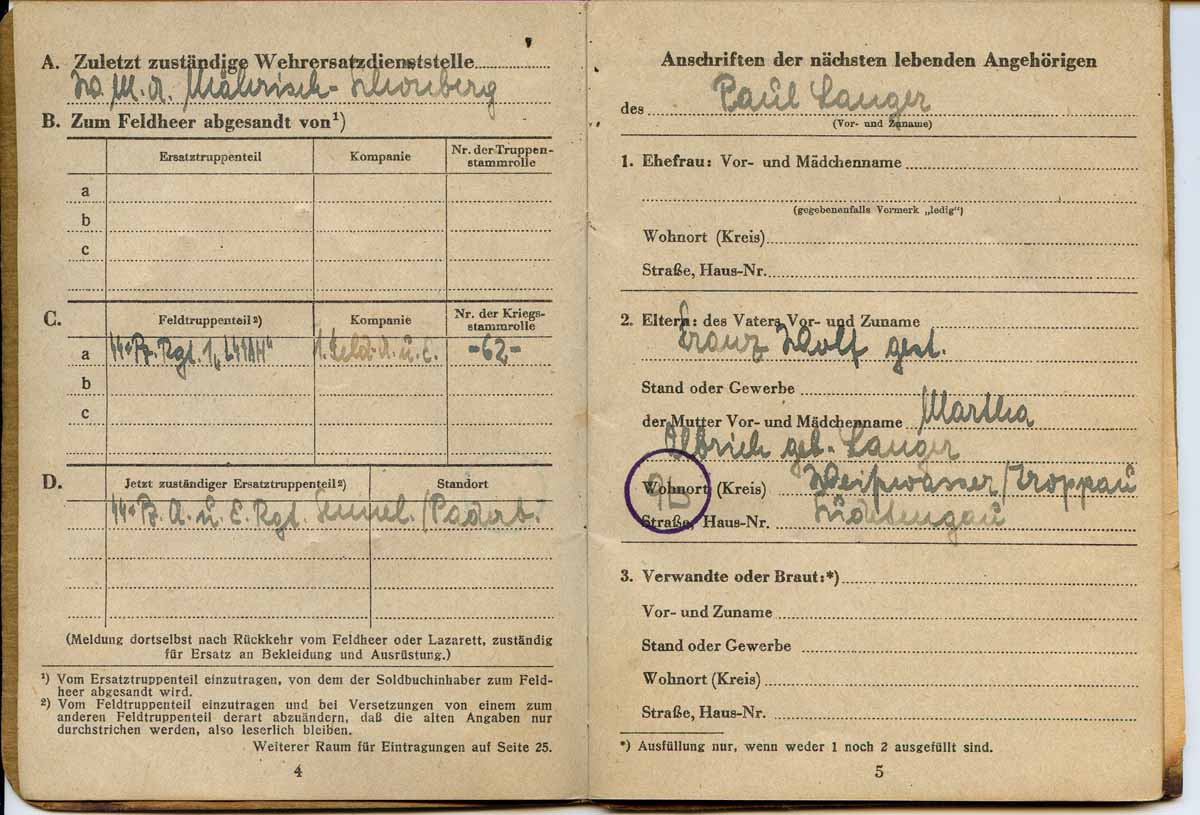 A. Zuletzt zuständige Wehrersatzdienststelle
W. M. A. Mährisch-Schönberg
B. Zum Feldheer abgesandt von¹)
Ersatztruppenteil Kompanie Nr. der Truppen-
stammrolle
a
b
c
C. Feldtruppenteil²) Kompanie Nr. der Kriegs-
stammrolle
a ᛋᛋ-Pz. Rgt. 1 „LSSAH" 1. Feld-A. u. E. -62-
b
c
D. Jetzt zuständiger Ersatztruppenteil²) Standort
ᛋᛋ-Pz. A. u. E. Rgt. Sennel./Paderb.
(Meldung dortselbst nach Rückkehr vom Feldheer oder Lazarett, zuständig
für Ersatz an Bekleidung und Ausrüstung.)
¹) Vom Ersatztruppenteil einzutragen, von dem der Soldbuchinhaber zum Feld-
heer abgesandt wird.
²) Vom Feldtruppenteil einzutragen und bei Versetzungen von einem zum
anderen Feldtruppenteil derart abzuändern, daß die alten Angaben nur
durchstrichen werden, also leserlich bleiben.
Weiterer Raum für Eintragungen auf Seite 25.
4
Anschriften der nächsten lebenden Angehörigen
des Paul Langer
(Vor- und Zuname)
1. Ehefrau: Vor- und Mädchenname
(gegebenenfalls Vermerk „ledig")
Wohnort (Kreis)
Straße, Haus-Nr.
2. Eltern: des Vaters Vor- und Zuname
Franz Wolf gest.
Stand oder Gewerbe
der Mutter Vor- und Mädchenname Martha
Olbrich geb. Langer
Wohnort (Kreis) Weißwasser/Troppau
Straße, Haus-Nr. Sudetengau
3. Verwandte oder Braut:*)
Vor- und Zuname
Stand oder Gewerbe
Wohnort (Kreis)
Straße, Haus-Nr.
*) Ausfüllung nur, wenn weder 1 noch 2 ausgefüllt sind.
5